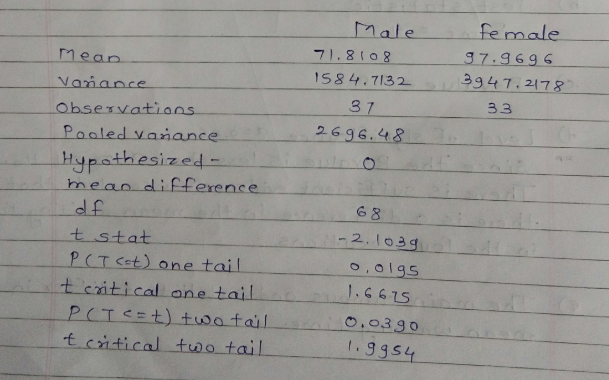 Male Female
Mean 71.8108 97.9696
Variance 1584.7132 3947.2178
Observations 37 33
Pooled variance 2696.48
Hypothesized - 0
mean difference
df 68
t stat -2.1039
P(T<=t) one tail 0.0195
t critical one tail 1.6675
P(T<=t) two tail 0.0390
t critical two tail 1.9954